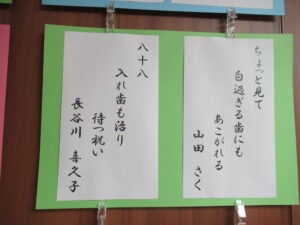 ちょっと見て
白過ぎる歯にも
あこがれる
山田 さく
八十八
入れ歯も治り
待つ祝い
長谷川 喜久子